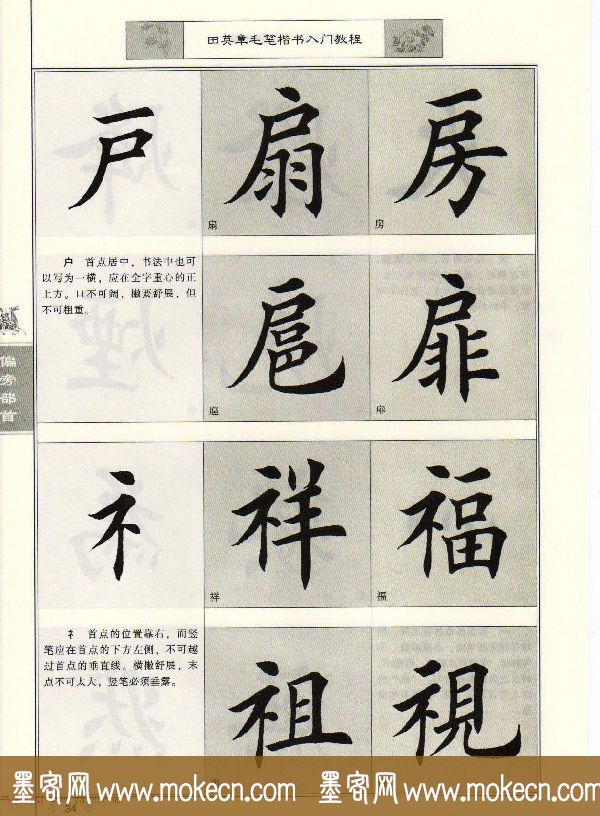 田英章毛笔楷书入门教程
户 扇 房
扇 房
户 首点居中，书法中也可
以写为一横，应在全字重心的正
上方。口不可阔，撇要舒展，但
不可粗重。
扈 扉
扈
偏旁部首
礻 祥 福
祥 福
礻 首点的位置靠右，而竖
笔应在首点的下方左侧，不可越
过首点的垂直线。横撇舒展，末
点不可太大，竖笔必须垂露。
祖 視
墨客网 www.mokecn.com 墨客网 www.mokecn.com
34